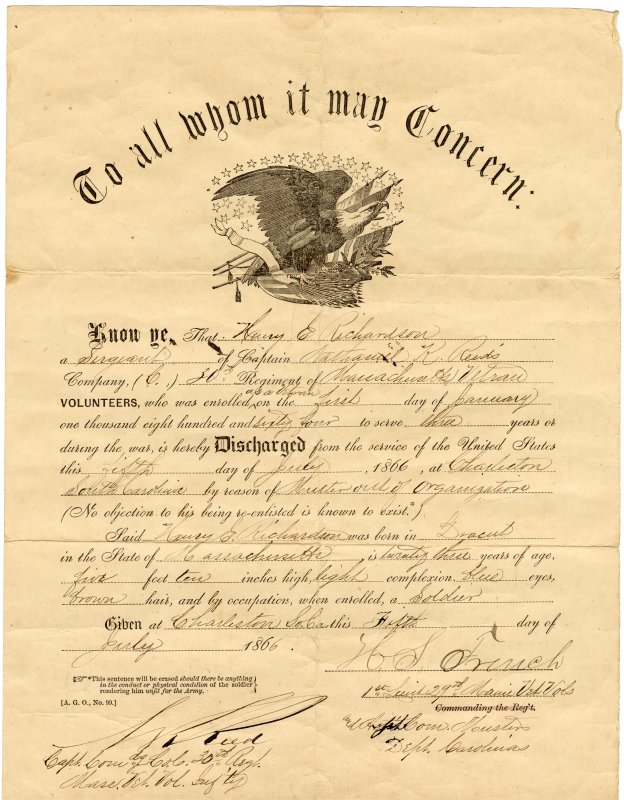 To all whom it may Concern:
Know ye, That Henry E Richardson
a Sergeant of Captain Nathaniel K. Reed's
Company, (C,) 30th Regiment of Massachusetts Vetran
VOLUNTEERS, who was enrolled as a Veteran on the first day of January
one thousand eight hundred and sixty four to serve three years or
during the war, is hereby Discharged from the service of the United States
this fifth day of July, 1866, at Charleston
South Carolina by reason of Muster out of Organization
(No objection to his being re-enlisted is known to exist.*)
Said Henry E. Richardson was born in Dracut
in the State of Massachusetts, is twenty three years of age,
five feet ten inches high, light complexion, blue eyes,
brown hair, and by occupation, when enrolled, a Soldier
Given at Charleston So. Ca this Fifth day of
July 1866.
*This sentence will be erased should there be anything
in the conduct or physical condition of the soldier
rendering him unfit for the Army.
[A. G. O., No. 99.]
H. S. French
1st Lieut 29th Maine Vet Vols
Commanding the Reg't.
Com. Musters
Dept. Carolinas
K. Reed
Capt. Comdg Co C. 30th Regt.
Mass. Vet. Vol. Inf'ty